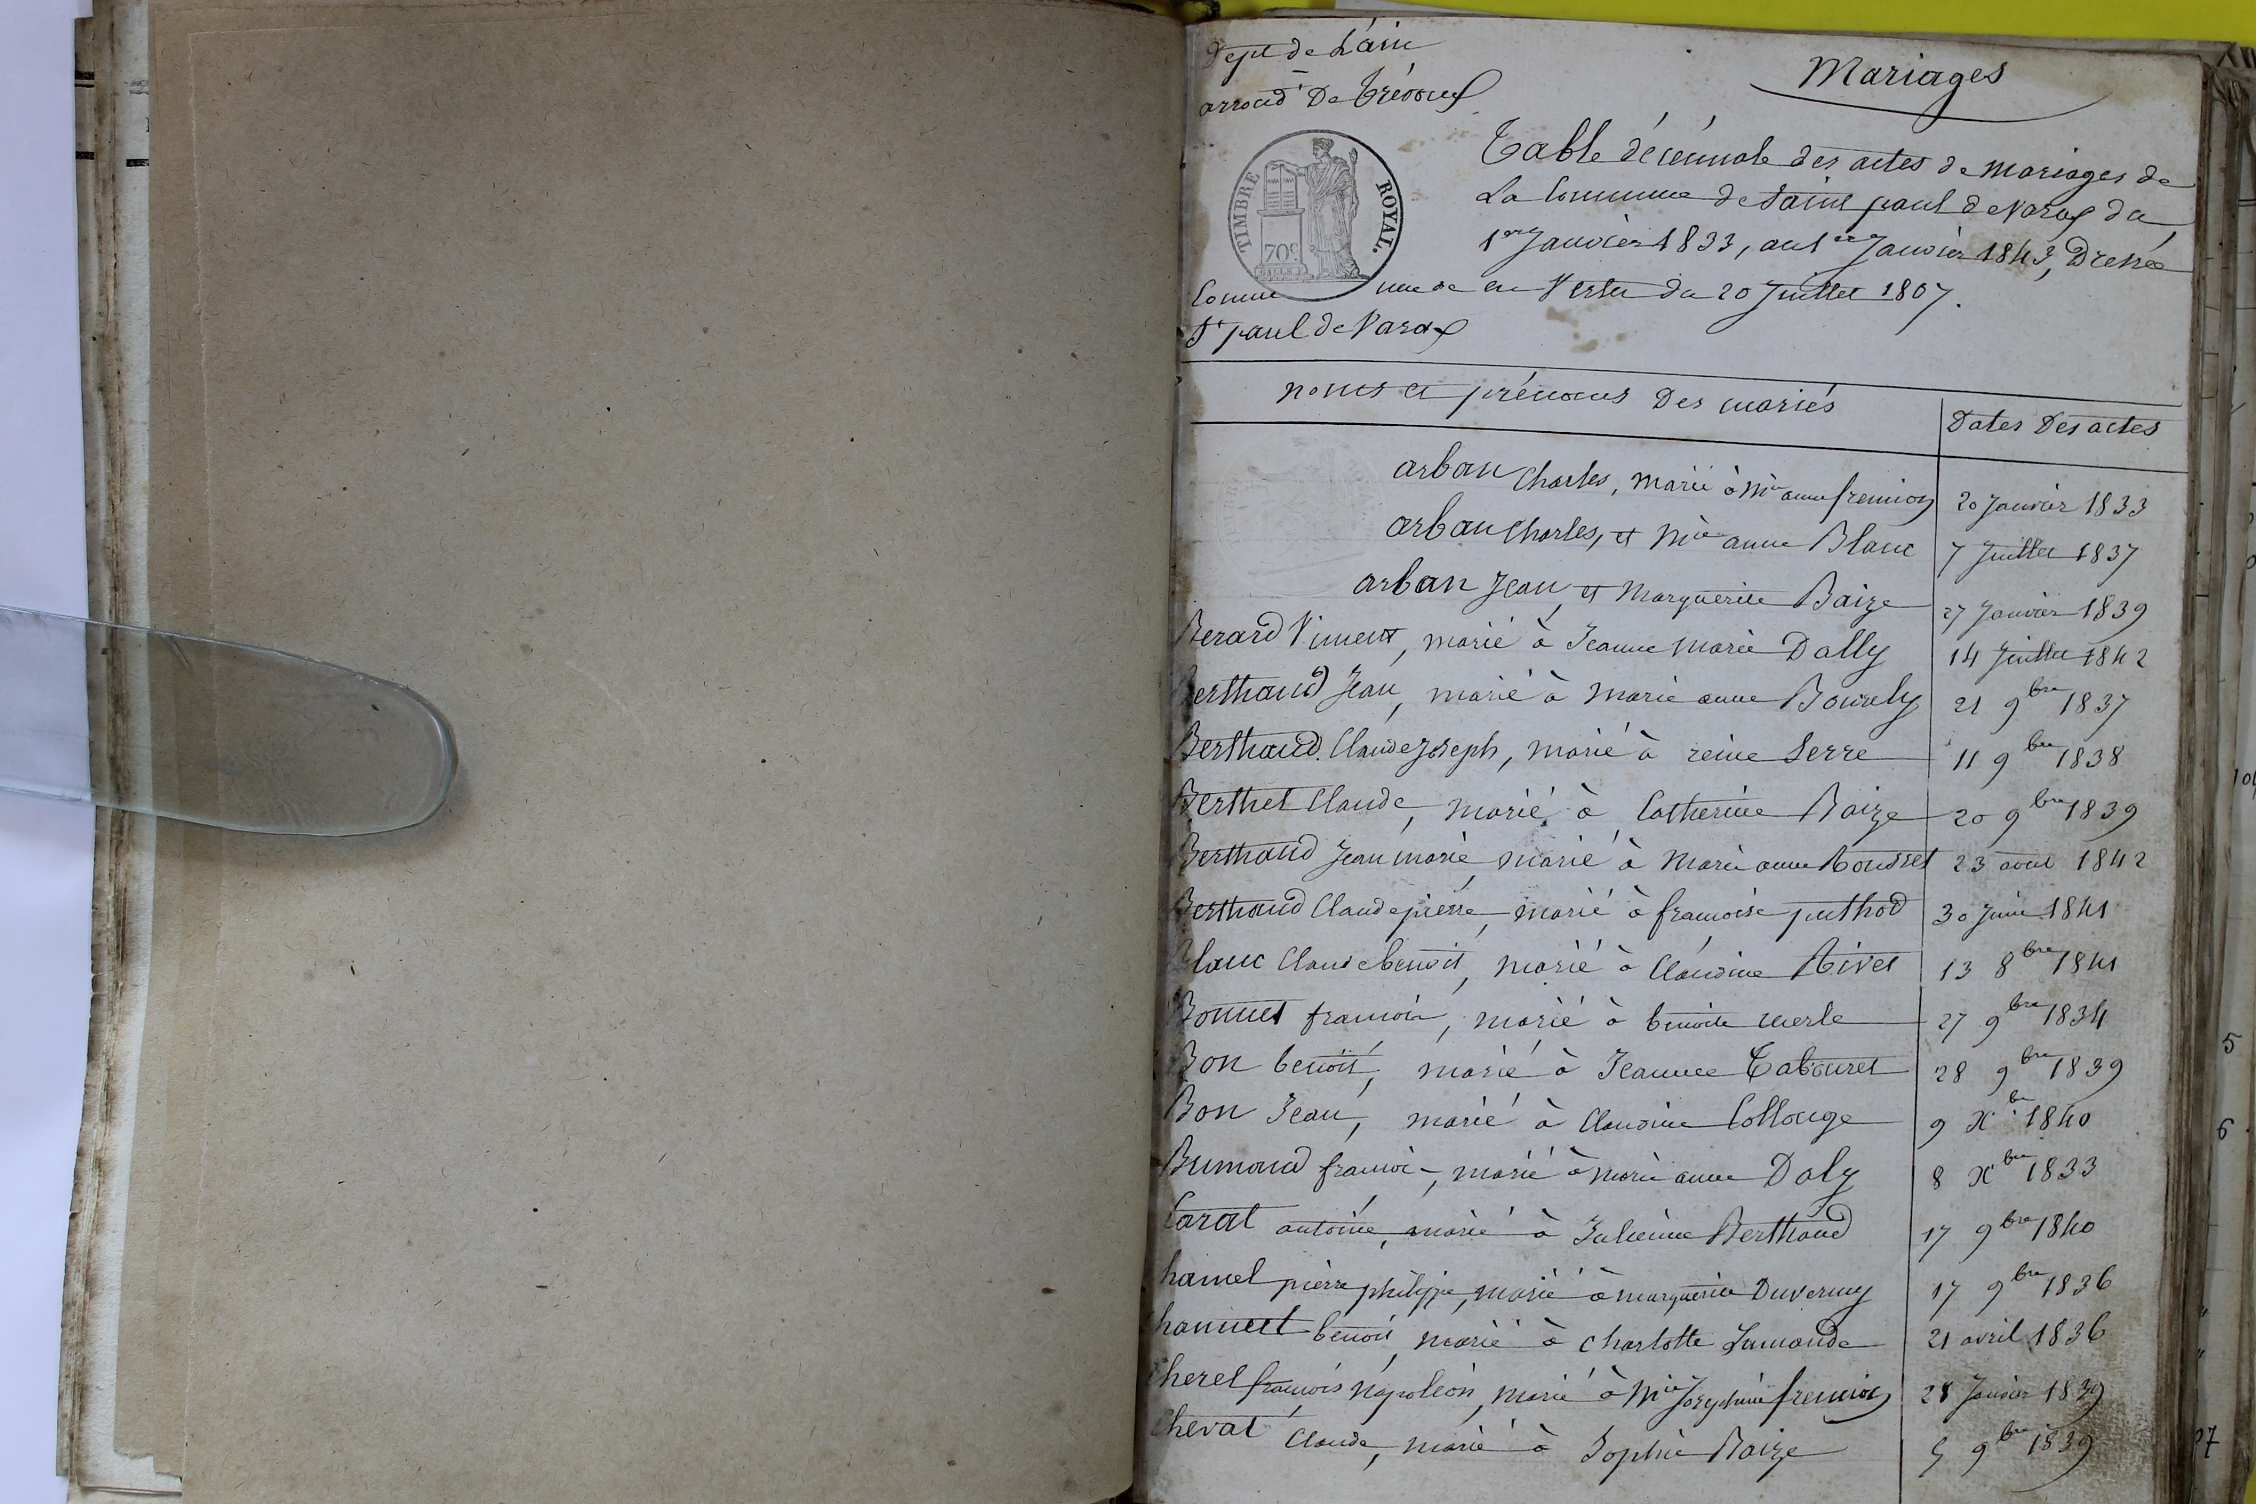 Dept de L'ain
arrond.t De Trévoux
Mariages
TIMBRE ROYAL.
70c
Table décennale des actes de mariages de
La Commune de Saint paul de Varax du
1er Janvier 1833, au 1er Janvier 1843, Dressée
Commune de en Vertu du 20 Juillet 1807.
St paul de Varax
noms et prénoms Des mariés
Dates Des actes
arban Charles, marié à Mie anne fremion 20 Janvier 1833
arban Charles, et Mie anne Blanc 7 Juillet 1837
arban Jean, et Marguerite Baize 27 Janvier 1839
Berard Viment, marié à Jeanne Marie Dally 14 Juillet 1842
Berthaud Jean, marié à Marie anne Bourely 21 9bre 1837
Berthaud Claude Joseph, marié à reine Serre 11 9bre 1838
Berthet Claude, marié à Catherine Baize 20 9bre 1839
Berthaud Jean marie, marié à Marie anne 23 1842
Berthaud Claude pierre, marié à francoise puthod 30 Juin 1841
Blanc Claude benoit, marié à Claudine Rivet 13 8bre 1841
Bonnet francois, marié à benoite merle 27 9bre 1834
Bon benoit, marié à Jeanne Tabouret 28 9bre 1839
Bon Jean, marié à Claudine Collouge 9 Xbre 1840
Bumond francois, marié à Marie anne Daly 8 Xbre 1833
Carat antoine, marié à Julienne Berthaud 17 9bre 1840
hamel pierre philippe, marié à marguerite Duverney 17 9bre 1836
hannet benoit, marié à Charlotte Jumande 21 avril 1836
Cherel françois Napoléon, marié à Mie Josephine fremion 28 Janvier 1839
Cheval Claude, marié à Sophie Baize 5 9bre 1839
5
6